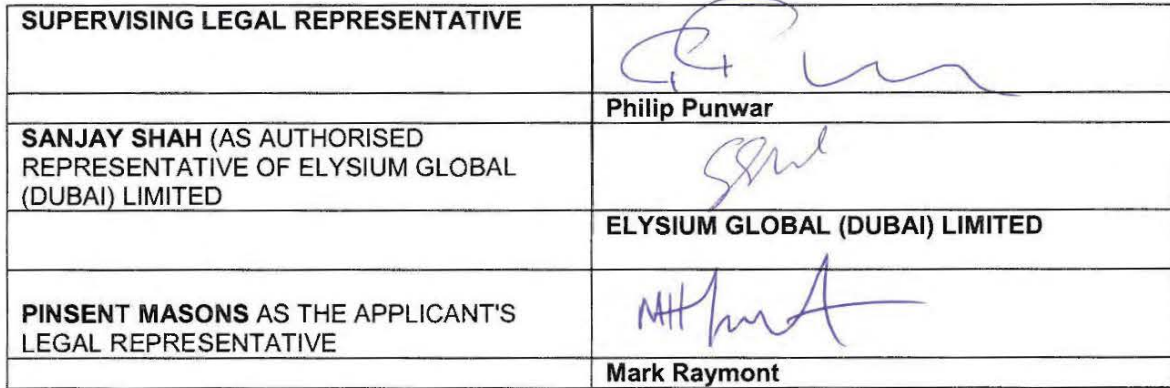 SUPERVISING LEGAL REPRESENTATIVE
Philip Punwar
SANJAY SHAH (AS AUTHORISED
REPRESENTATIVE OF ELYSIUM GLOBAL
(DUBAI) LIMITED
ELYSIUM GLOBAL (DUBAI) LIMITED
PINSENT MASONS AS THE APPLICANT'S
LEGAL REPRESENTATIVE
Mark Raymont